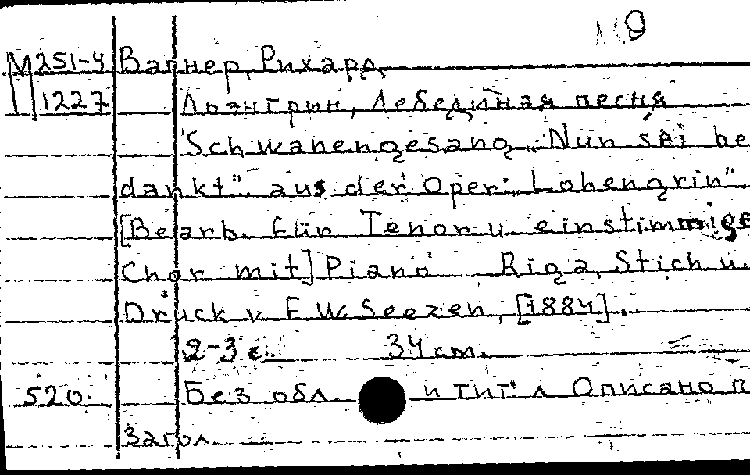 М 9
М 251-4 Вагнер, Рихард
1227 Лоэнгрин, Лебединая песня
"Schwanengesang "Nun sei be
dankt" aus der Oper: Lohengrin"
[Bearb. für Tenor u. einstimmige
Chor mit] Piano Riga, Stich u.
Druck v. E. W. Seezen, [1884].
2-3 с. 34 cm.
520. Без обл. и тит. л Описано п
загол.